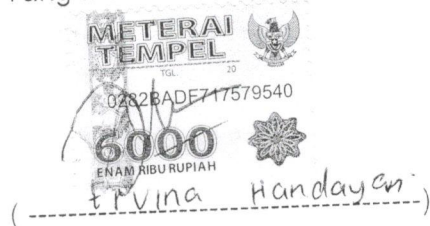 METERAI
TEMPEL
TGL. 20
0282BADF717579540
6000
ENAM RIBU RUPIAH
Handayani
(                    )